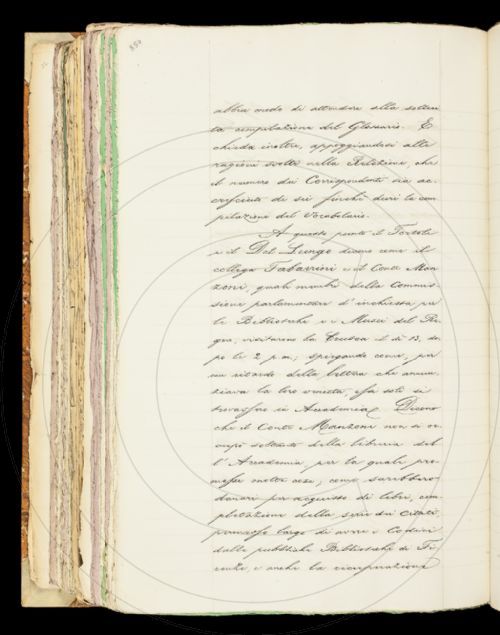 354
abbia modo di attendere alla solleci
ta compilazione del Glossario. E
chiede inoltre, appoggiandosi alle
ragioni svolte nella Relazione, che
il numero dei Corrispondenti sia ac-
cresciuto di sei finché duri la com
pilazione del Vocabolario.
A questo punto il Tortoli
e il Del Lungo dicono come il
collega Tabarrini e il Conte Man
zoni, quali membri della Commis-
sione parlamentare d'inchiesta per
le Biblioteche e i Musei del Re-
gno, visitarono la Crusca il dì 13, do
po le 2 p.m.; spiegando come, per
un ritardo della lettera che annun
ziava la loro venuta, essi soli si
trovassero in Accademia. Dicono
che il Conte Manzoni non si oc
cupò soltanto della libreria del
l'Accademia, per la quale pro-
messe molte cose, come sarebbero
denari per acquisto di libri, com
pletazione della serie dei Citati,
permesso largo di avere i Codici
dalle pubbliche Biblioteche di Fi
renze, e anche la ricuperazione